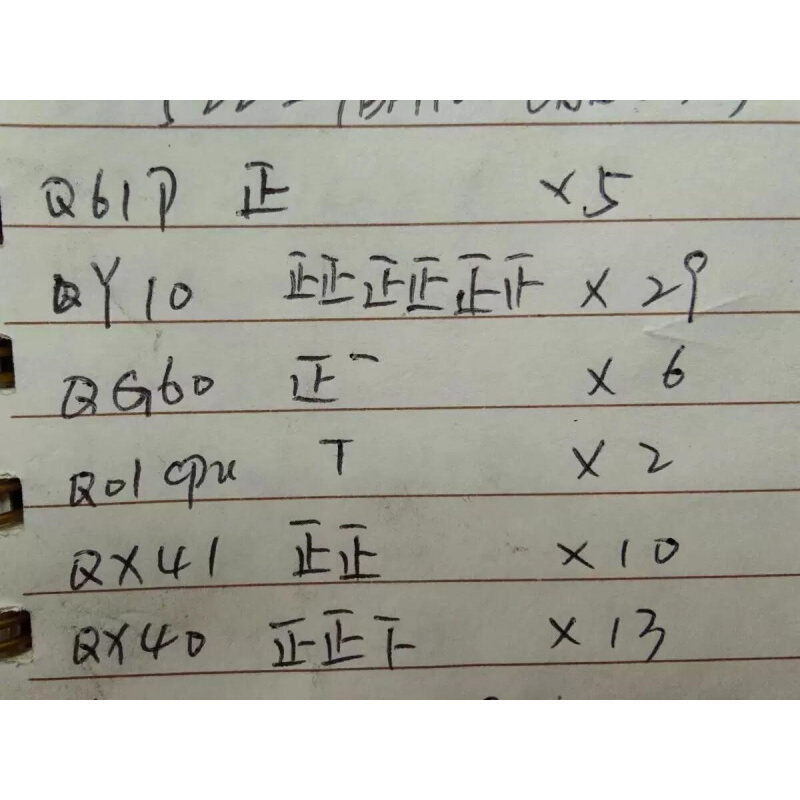 Q61P 正 ×5
QY10 正正正正正𣥂 ×29
QG60 正一 ×6
Q01cpu T ×2
QX41 正正 ×10
QX40 正正下 ×13